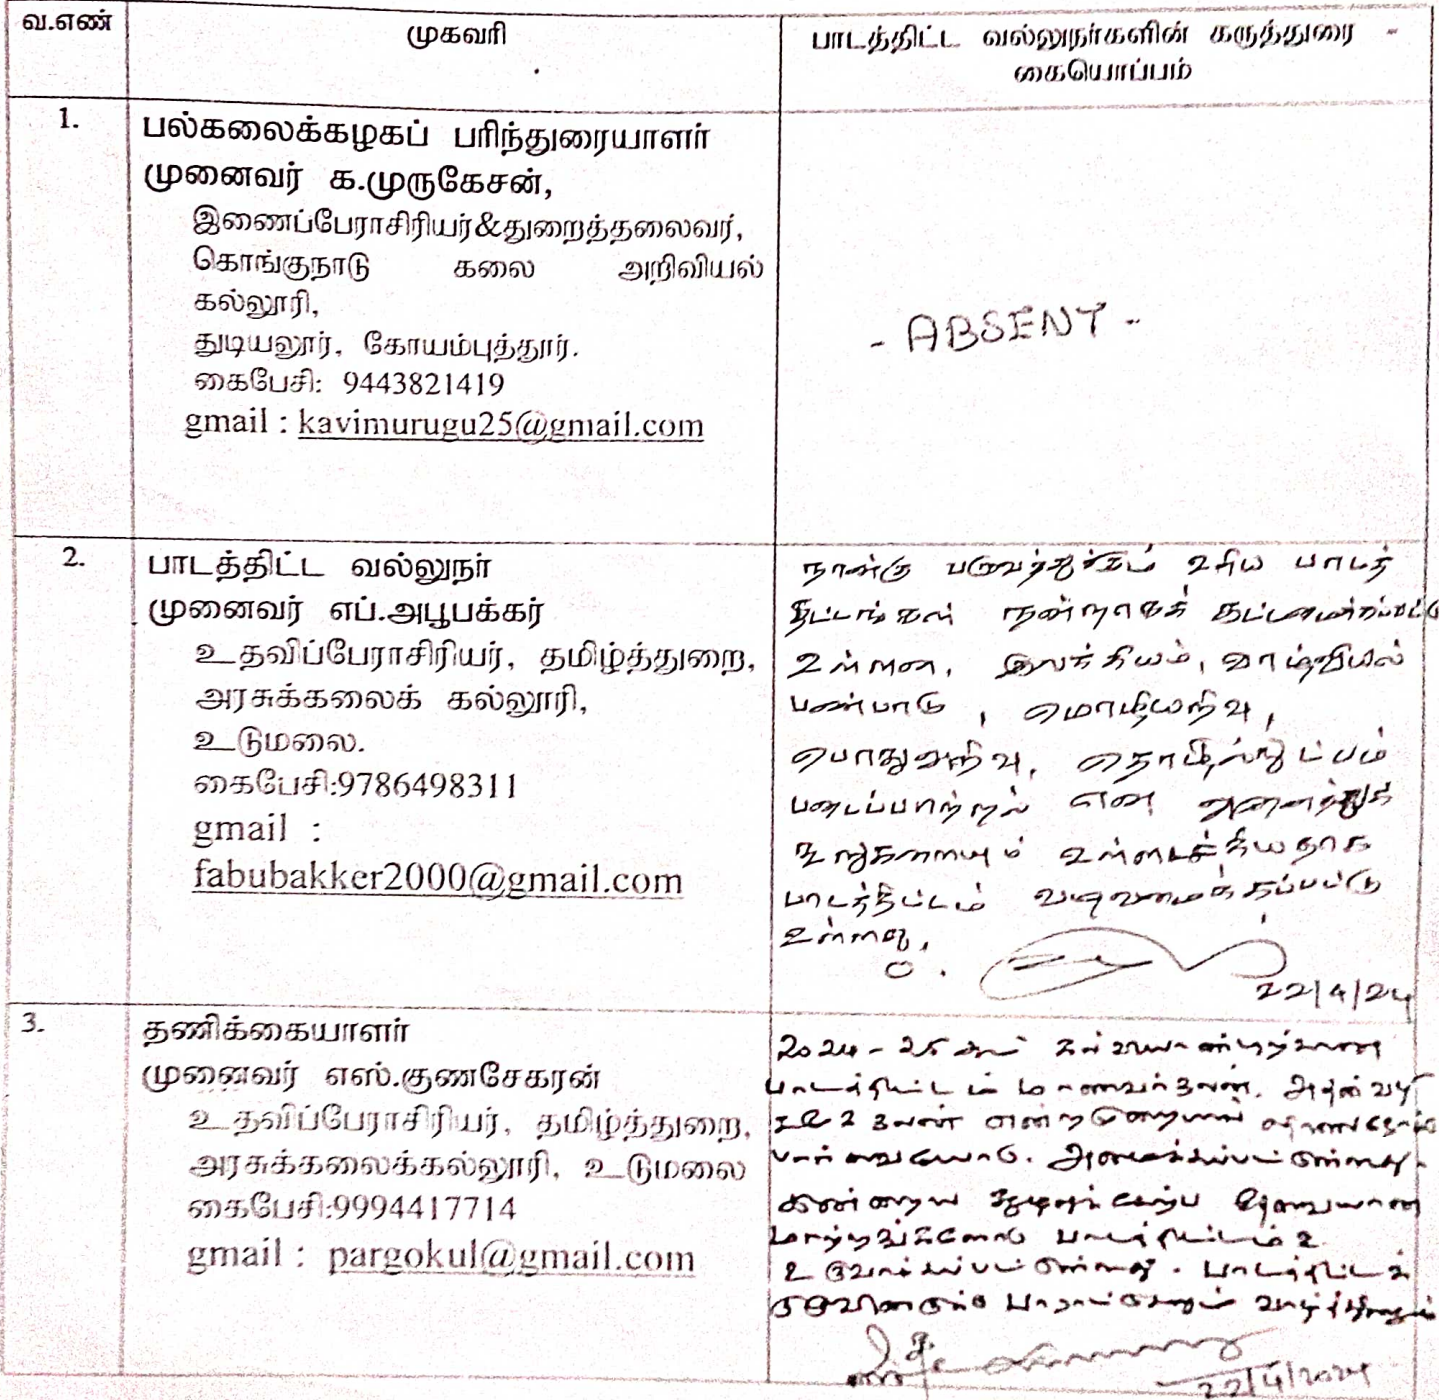 வ.எண்
முகவரி
பாடத்திட்ட வல்லுநர்களின் கருத்துரை -
கையொப்பம்
1.
பல்கலைக்கழகப் பரிந்துரையாளர்
முனைவர் க.முருகேசன்,
இணைப்பேராசிரியர்&துறைத்தலைவர்,
கொங்குநாடு கலை அறிவியல்
கல்லூரி,
துடியலூர், கோயம்புத்தூர்.
கைபேசி: 9443821419
gmail : kavimurugu25@gmail.com
- ABSENT -
2.
பாடத்திட்ட வல்லுநர்
முனைவர் எப்.அபூபக்கர்
உதவிப்பேராசிரியர், தமிழ்த்துறை,
அரசுக்கலைக் கல்லூரி,
உடுமலை.
கைபேசி:9786498311
gmail :
fabubakker2000@gmail.com
நான்கு பருவத்துக்கும் உரிய பாடத்
திட்டங்கள் நன்றாகக் கட்டமைக்கப்பட்டு
உள்ளன. இலக்கியம், வாழ்வியல்
பண்பாடு, மொழியறிவு,
பொதுஅறிவு, தொழில்நுட்பம்
படைப்பாற்றல் என அனைத்துக்
கூறுகளையும் உள்ளடக்கியதாக
பாடத்திட்டம் வடிவமைக்கப்பட்டு
உள்ளது.
22/4/24
3.
தணிக்கையாளர்
முனைவர் எஸ்.குணசேகரன்
உதவிப்பேராசிரியர், தமிழ்த்துறை,
அரசுக்கலைக்கல்லூரி, உடுமலை
கைபேசி:9994417714
gmail : pargokul@gmail.com
2024-25 ஆம் கல்வியாண்டிற்கான
பாடத்திட்டம் மாணவர்களின்
பார்வையோடு அமைக்கப்பட்டுள்ளது.
தேவையான
மாற்றங்களோடு பாடத்திட்டம்
உருவாக்கப்பட்டுள்ளது. பாடத்திட்டக்
குழுவினருக்கு பாராட்டுகளும்
22/4/2024